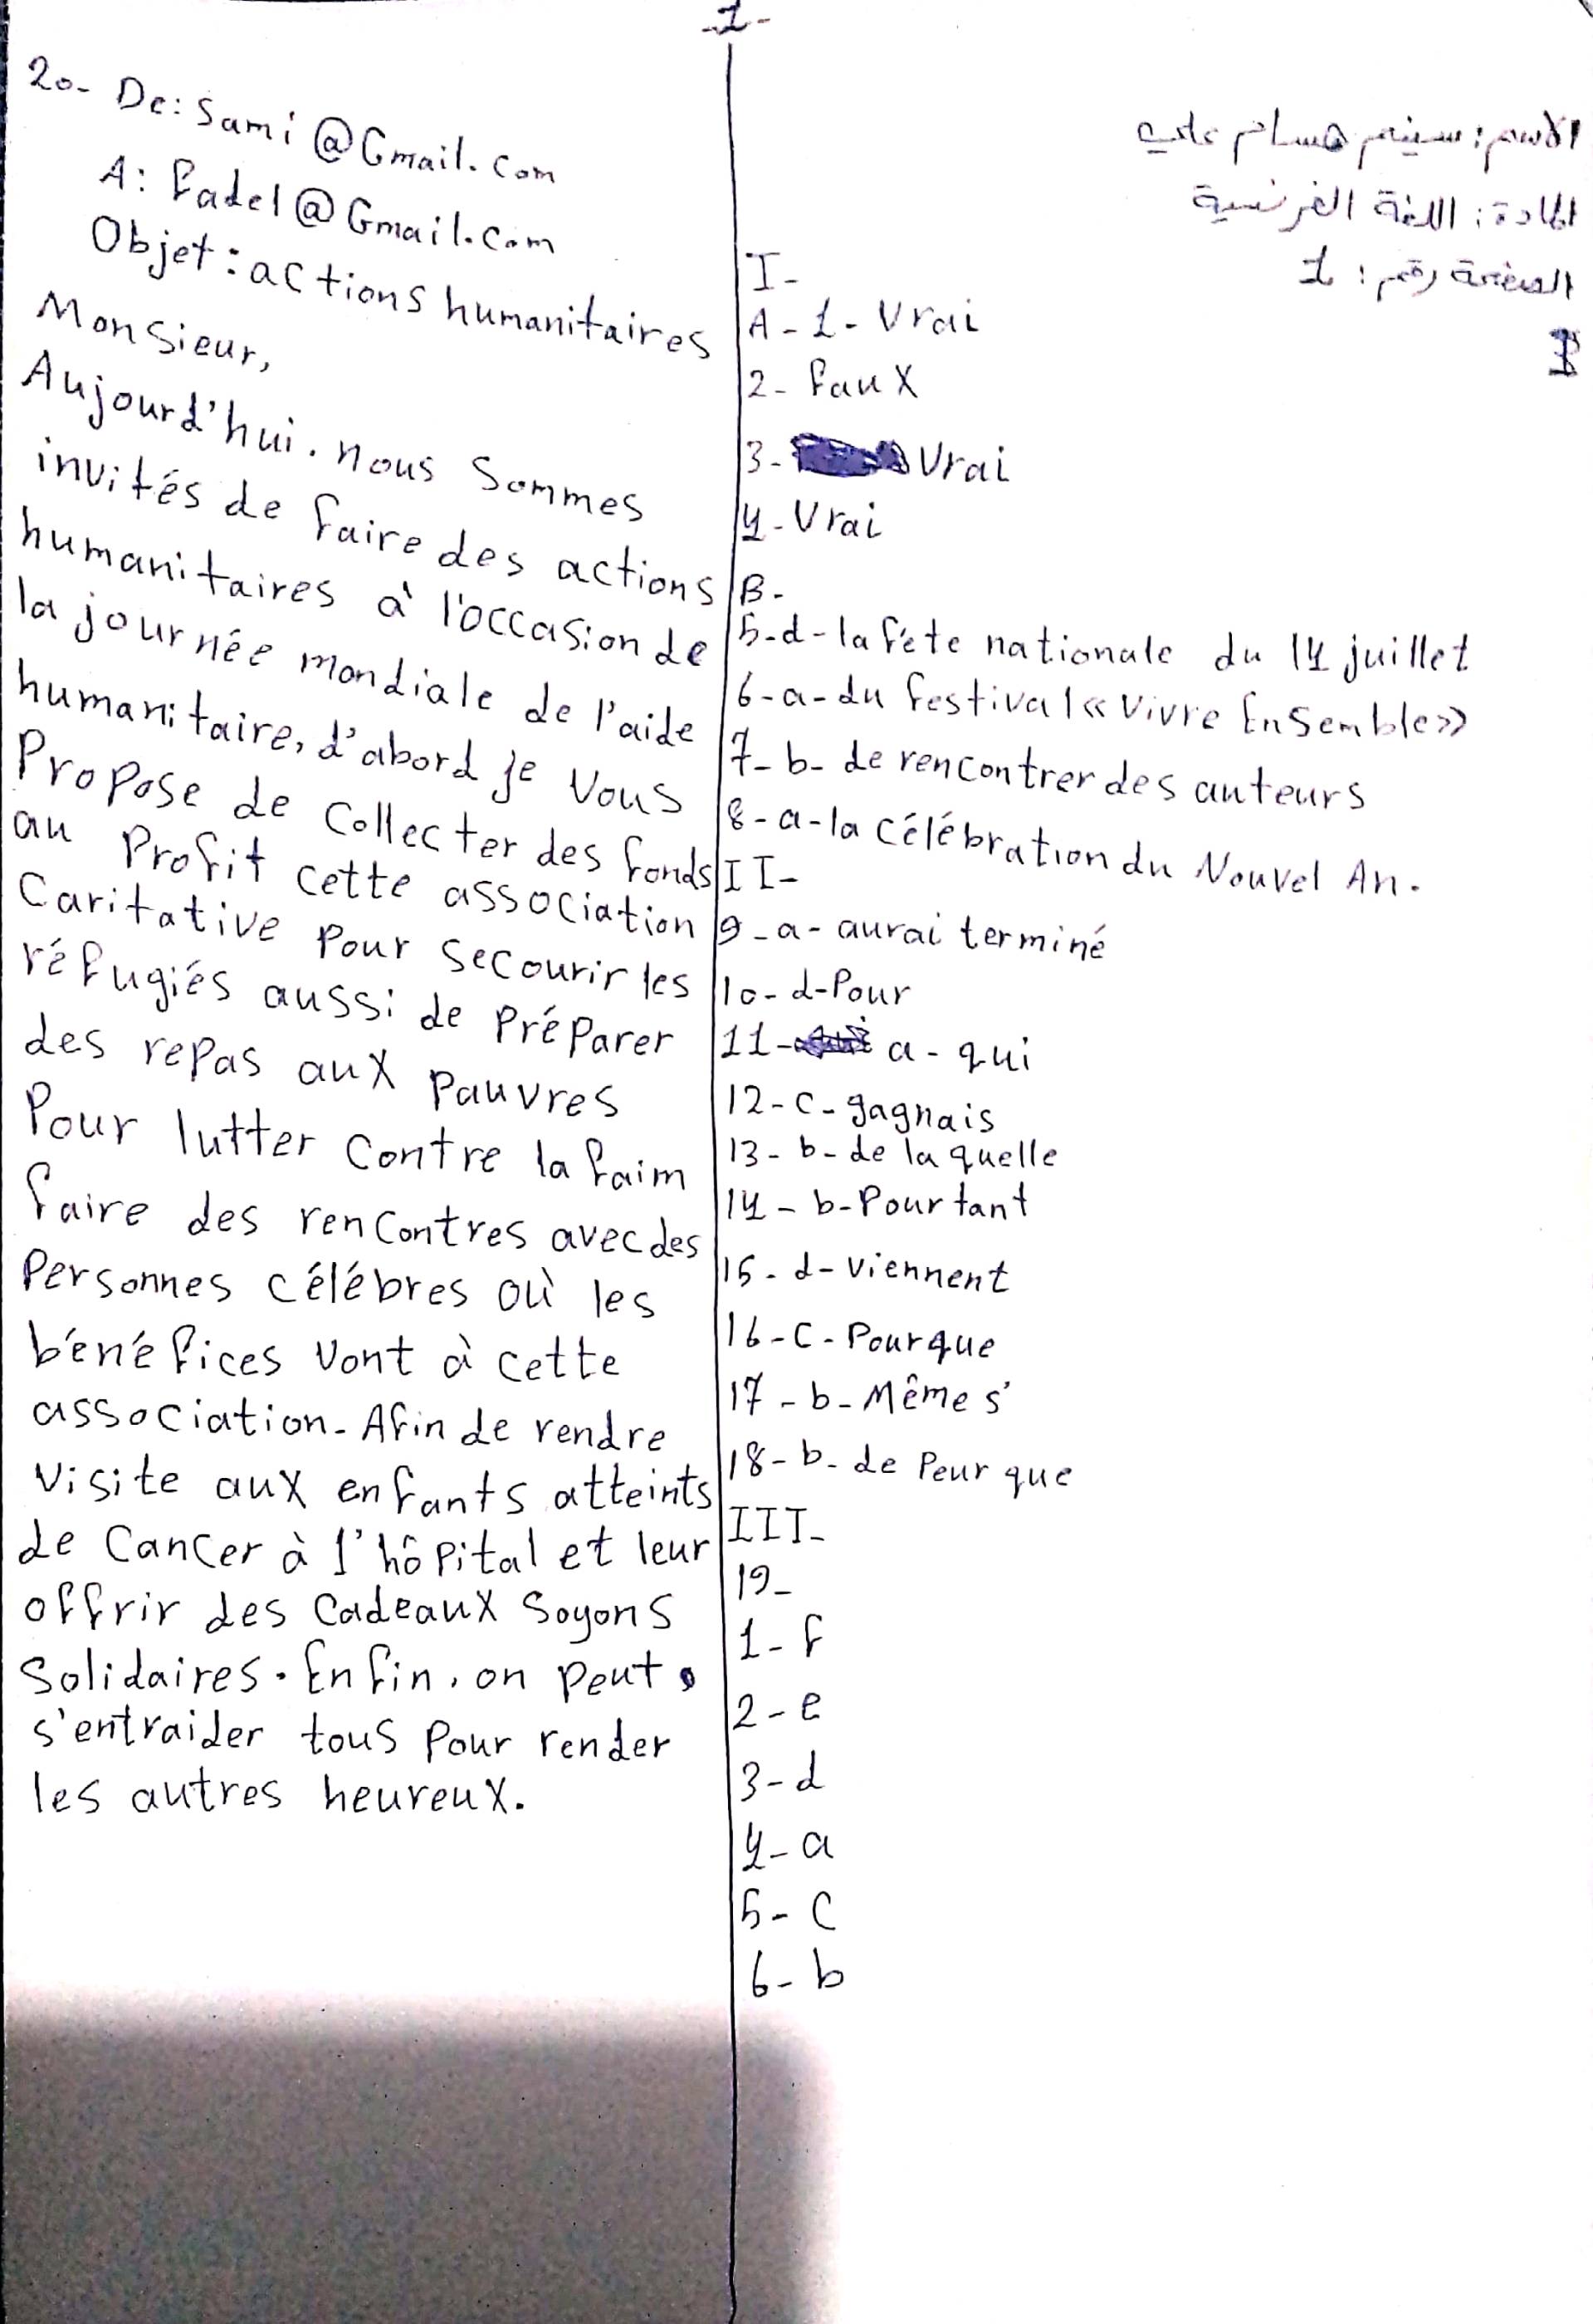 -1-
الاسم: سينم حسام علي
المادة: اللغة الفرنسية
الصفحة رقم: 1
I-
A-1-Vrai
2-faux
3-Vrai
4-Vrai
B-
5-d-la fête nationale du 14 juillet
6-a-du festival «Vivre Ensemble»
7-b-de rencontrer des auteurs
8-a-la célébration du Nouvel An.
II-
9-a-aurai terminé
10-d-Pour
11-a-qui
12-c-gagnais
13-b-de laquelle
14-b-Pourtant
15-d-viennent
16-c-Pour que
17-b-Même s'
18-b-de Peur que
III-
19-
1-f
2-e
3-d
4-a
5-c
6-b
20- De: Sami@Gmail.com
A: fadel@Gmail.com
Objet: actions humanitaires
Monsieur,
Aujourd'hui. nous sommes
invités de faire des actions
humanitaires à l'occasion de
la journée mondiale de l'aide
humanitaire, d'abord je vous
Propose de collecter des fonds
au Profit cette association
Caritative pour secourir les
réfugiés aussi de préparer
des repas aux pauvres
Pour lutter contre la faim
faire des rencontres avec des
Personnes célébres où les
bénéfices vont à cette
association. Afin de rendre
visite aux enfants atteints
de cancer à l'hôpital et leur
offrir des cadeaux soyons
solidaires. Enfin, on peut
s'entraider tous pour render
les autres heureux.